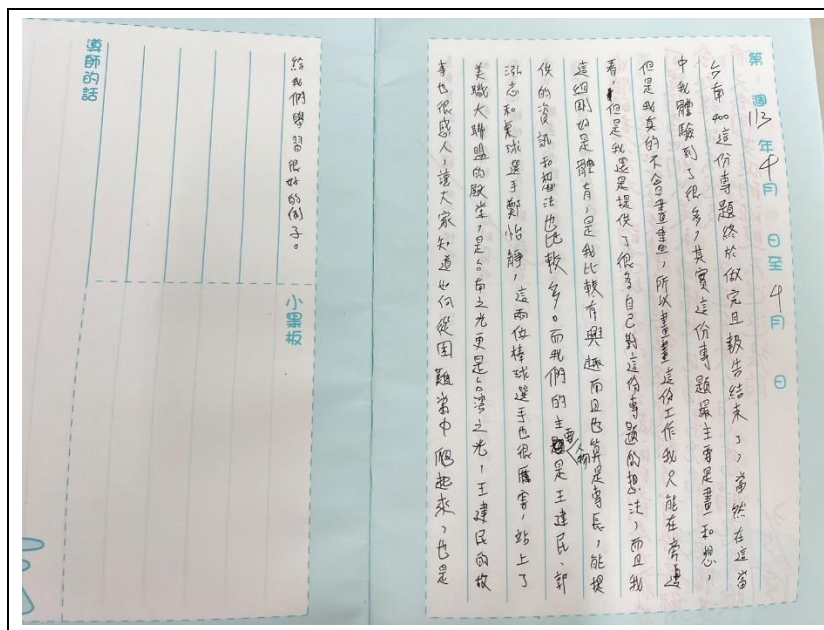 第 週 113 年 4 月 日至 4 月 日
台南400這份專題終於做完且報告結束了,當然在這當
中我體驗到了很多,其實這份專題最主要是畫和想,
但是我真的不會畫畫,所以畫畫這份工作我只能在旁邊
看,但是我還是提供了很多自己對這份專題的想法,而且我
這組剛好是體育,是我比較有興趣而且也算是專長,能提
供的資訊和想法也比較多。而我們的主要人物是王建民、郭
泓志和桌球選手鄭怡靜,這兩位棒球選手也很厲害,站上了
美職大聯盟的殿堂,是台南之光更是台灣之光,王建民的故
事也很感人,讓大家知道如何從困難當中爬起來,也是
給我們學習很好的例子。
小黑板
導師的話